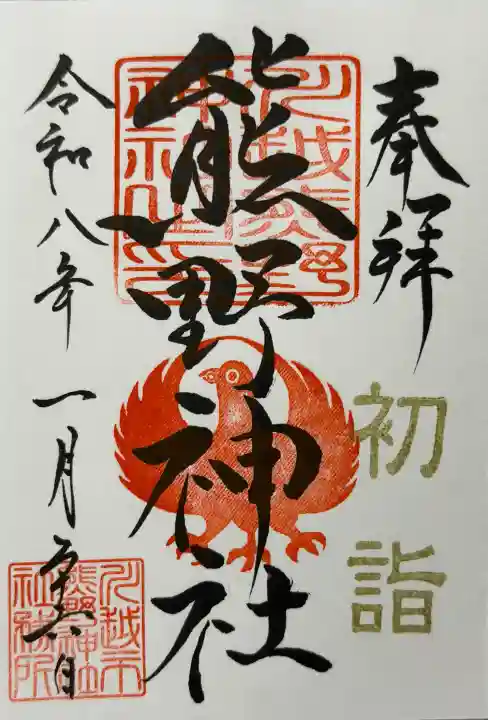 奉拝
初詣
熊野神社
川越熊野
神社之印
令和八年一月日
川越市
熊野神社
社務所